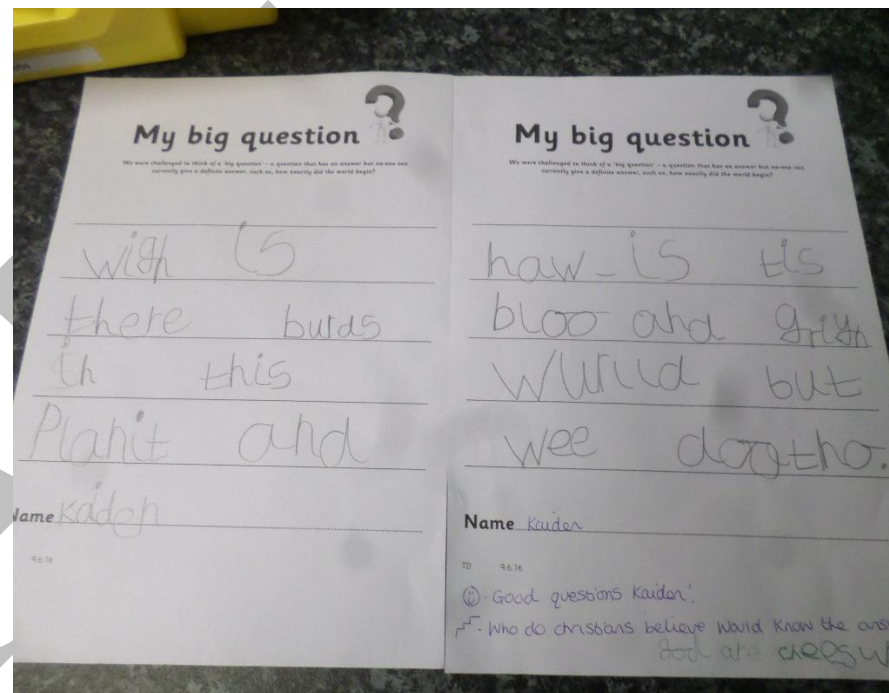 My big question
We were challenged to think of a 'big question' - a question that has an answer but no-one can
currently give a definite answer, such as, how exactly did the world begin?
wigh is
there burds
in this
Planit and
Name Kaiden
9.6.16
My big question
We were challenged to think of a 'big question' - a question that has an answer but no-one can
currently give a definite answer, such as, how exactly did the world begin?
haw-is tis
bloo and
but
wee
Name Kaiden
TD 9.6.16
Good questions Kaiden!
Who do christians believe would know the ans
god